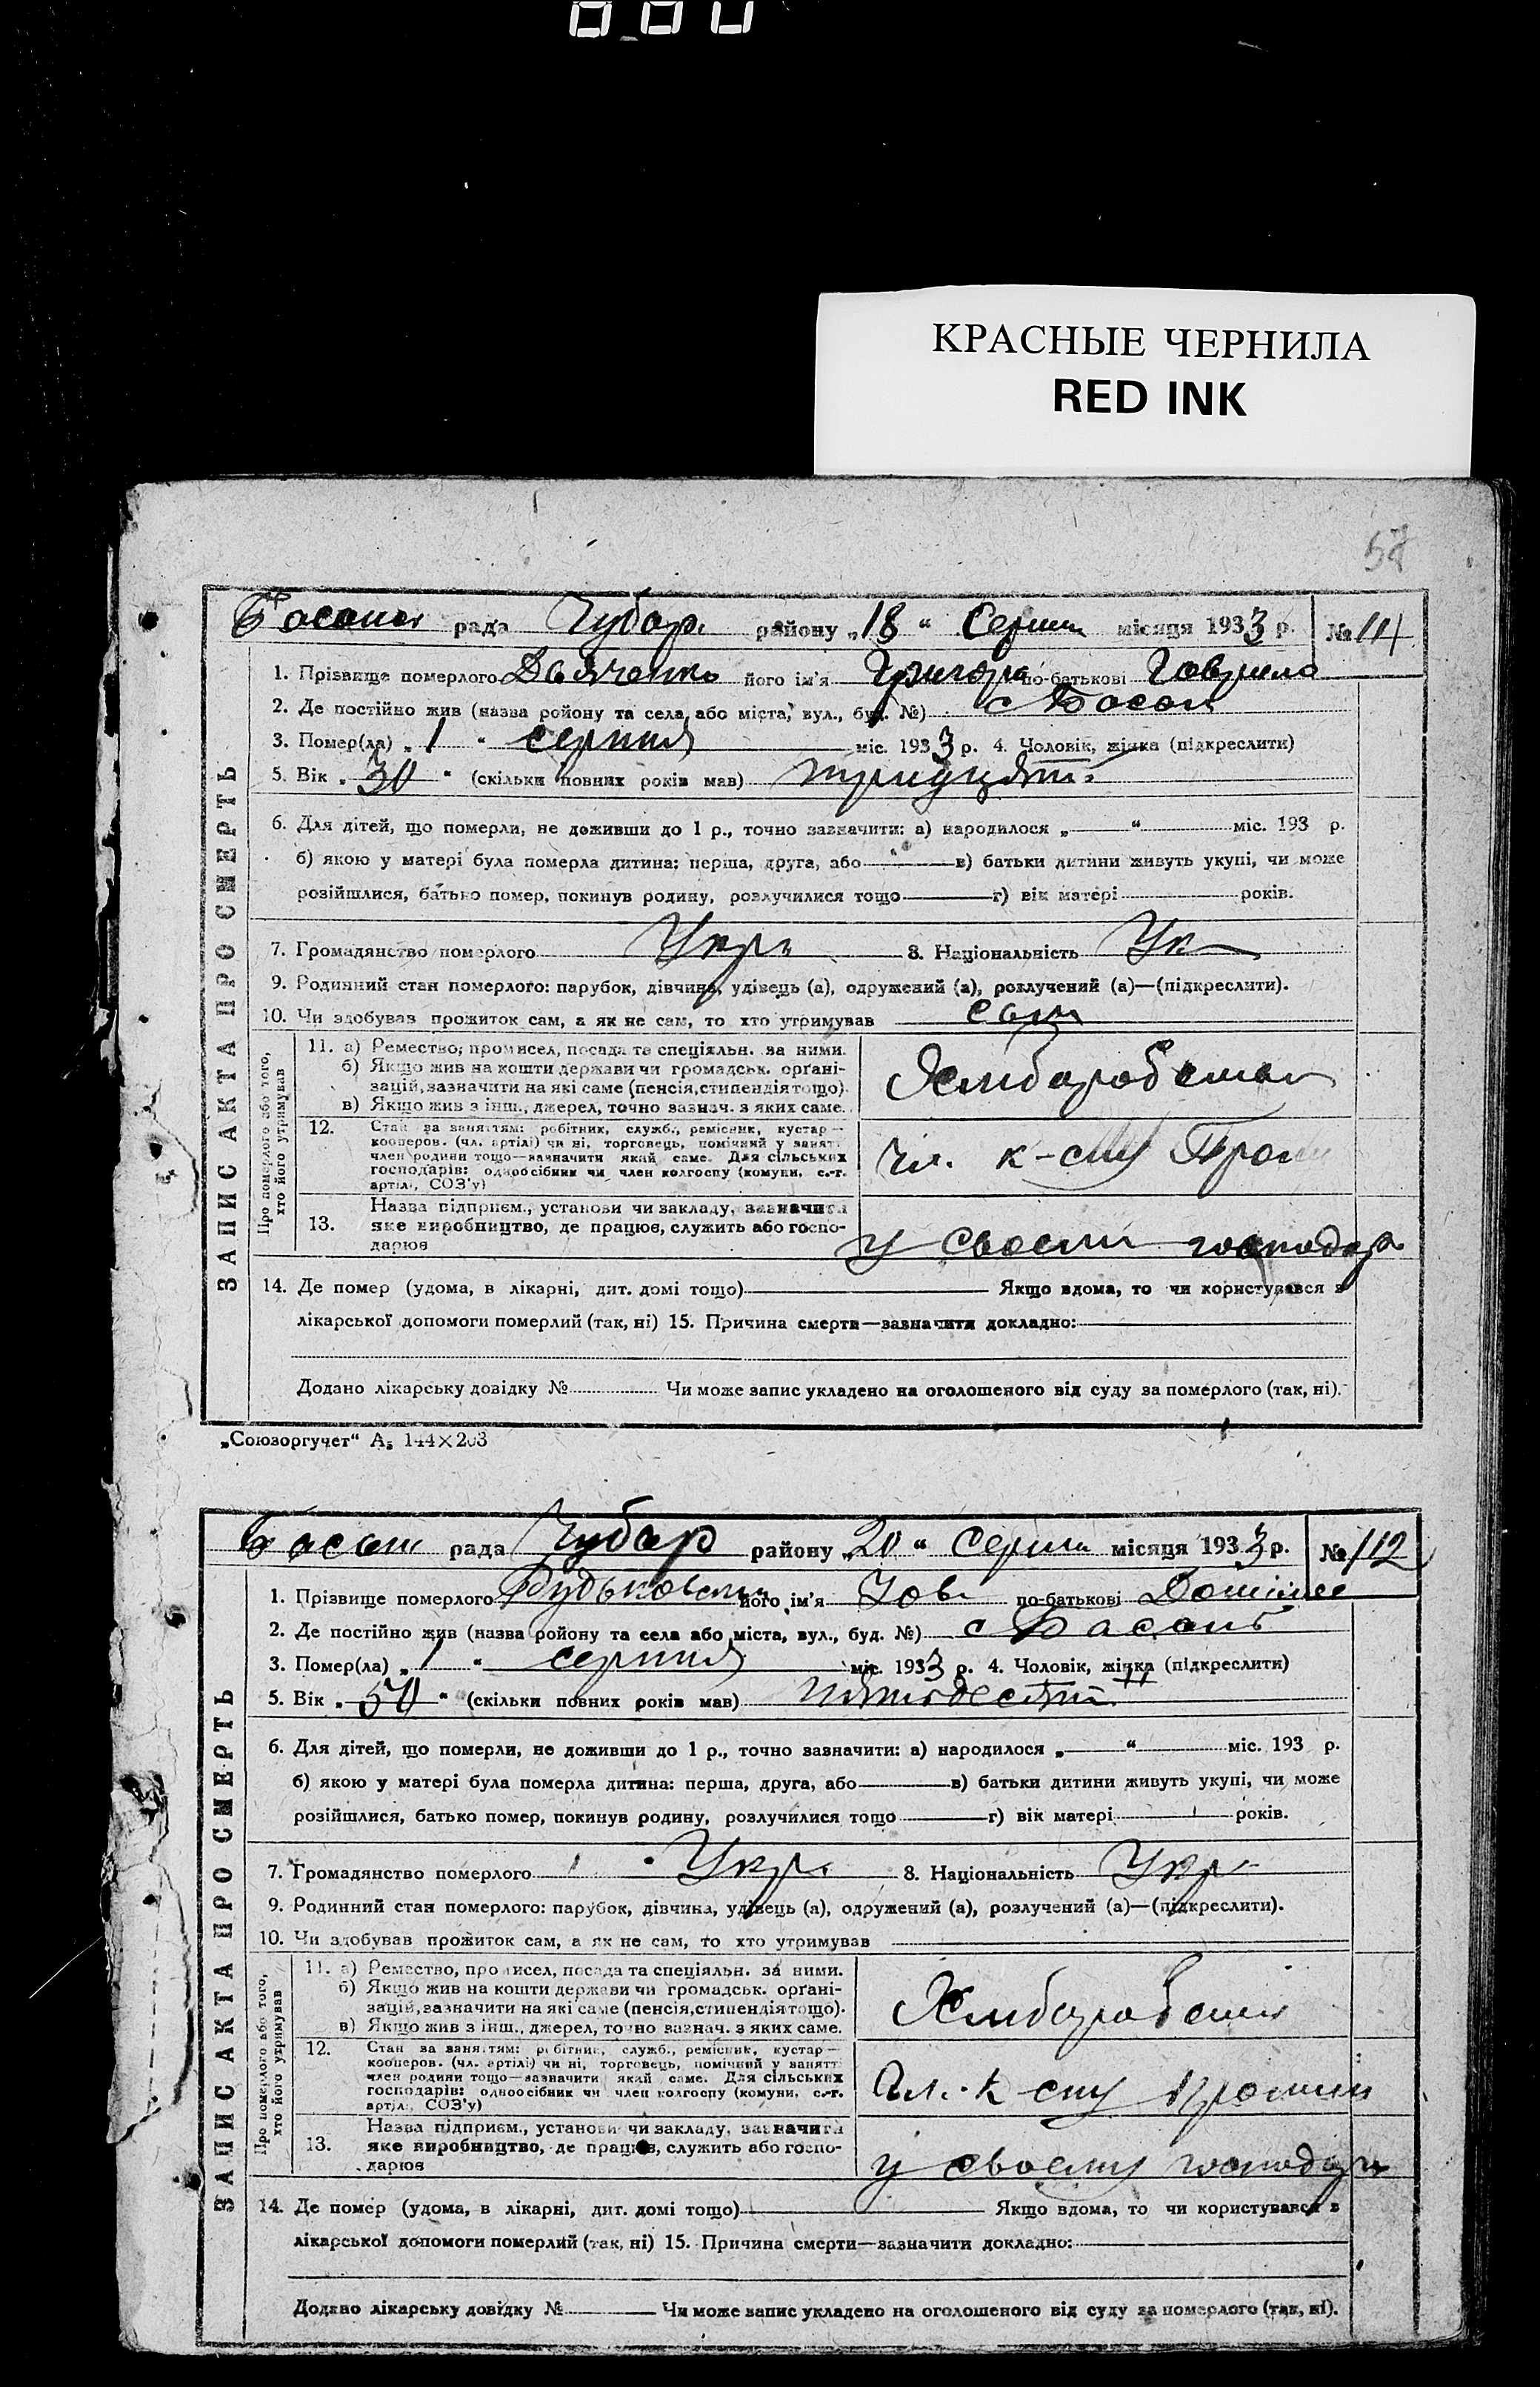 КРАСНЫЕ ЧЕРНИЛА
RED INK
57
Басан рада Чубар. району „18“ Серпн місяця 1933 р. № 111
ЗАПИС АКТА ПРО СМЕРТЬ
1. Прізвище померлого Дьяченко його ім'я Григорій по-батькові Гаврило
2. Де постійно жив (назва району та села або міста, вул., буд. №) с Басань
3. Помер(ла) „1“ серпня міс. 1933 р. 4. Чоловік, жінка (підкреслити)
5. Вік „30“ (скільки повних років мав) тридцять
6. Для дітей, що померли, не доживши до 1 р., точно зазначити: а) народилося „ “ міс. 193 р.
б) якою у матері була померла дитина: перша, друга, або в) батьки дитини живуть укупі, чи може
розійшлися, батько помер, покинув родину, розлучилися тощо г) вік матері років.
7. Громадянство померлого Укр 8. Національність Ук
9. Родинний стан померлого: парубок, дівчина, удівець (а), одружений (а), розлучений (а)—(підкреслити).
10. Чи здобував прожиток сам, а як не сам, то хто утримував сам
Про померлого або того, хто його утримував
11. а) Ремество, промисел, посада та спеціяльн. за ними.
б) Якщо жив на кошти держави чи громадськ. органі-
зацій, зазначити на які саме (пенсія, стипендія тощо).
в) Якщо жив з інш., джерел, точно зазнач. з яких саме.
Хлибороб
12. Стан за заняттям: робітник, служб., ремісник, кустар—
кооперов. (чл. артілі) чи ні, торговець, помічний у занятт.
член родини тощо—зазначити який саме. Для сільських
господарів: одноосібник чи член колгоспу (комуни, с.-г.
артіл., СОЗ'у)
Чл. к-спу Пром
13. Назва підприєм., установи чи закладу, зазначити
яке виробництво, де працює, служить або госпо-
дарює
у своєму господар
14. Де помер (удома, в лікарні, дит. домі тощо) Якщо вдома, то чи користувався з
лікарської допомоги померлий (так, ні) 15. Причина смерти—зазначити докладно:
Додано лікарську довідку № Чи може запис укладено на оголошеного від суду за померлого (так, ні).
„Союзоргучет“ А₅ 144×203
Басан рада Чубар району „20“ Серпн місяця 1933 р. № 112
ЗАПИС АКТА ПРО СМЕРТЬ
1. Прізвище померлого його ім'я Йов по-батькові
2. Де постійно жив (назва району та села або міста, вул., буд. №) с Басань
3. Помер(ла) „1“ серпня міс. 1933 р. 4. Чоловік, жінка (підкреслити)
5. Вік „50“ (скільки повних років мав) пятьдесят
6. Для дітей, що померли, не доживши до 1 р., точно зазначити: а) народилося „ “ міс. 193 р.
б) якою у матері була померла дитина: перша, друга, або в) батьки дитини живуть укупі, чи може
розійшлися, батько помер, покинув родину, розлучилися тощо г) вік матері років.
7. Громадянство померлого Укр 8. Національність Укр
9. Родинний стан померлого: парубок, дівчина, удівець (а), одружений (а), розлучений (а)—(підкреслити).
10. Чи здобував прожиток сам, а як не сам, то хто утримував
Про померлого або того, хто його утримував
11. а) Ремество, промисел, посада та спеціяльн. за ними.
б) Якщо жив на кошти держави чи громадськ. органі-
зацій, зазначити на які саме (пенсія, стипендія тощо).
в) Якщо жив з інш., джерел, точно зазнач. з яких саме.
Хлибороб
12. Стан за заняттям: робітник, служб., ремісник, кустар—
кооперов. (чл. артілі) чи ні, торговець, помічний у занятт.
член родини тощо—зазначити який саме. Для сільських
господарів: одноосібник чи член колгоспу (комуни, с.-г.
артіл., СОЗ'у)
Чл. к спу Промин
13. Назва підприєм., установи чи закладу, зазначити
яке виробництво, де працює, служить або госпо-
дарює
у своєму господар
14. Де помер (удома, в лікарні, дит. домі тощо) Якщо вдома, то чи користувався з
лікарської допомоги померлий (так, ні) 15. Причина смерти—зазначити докладно:
Додано лікарську довідку № Чи може запис укладено на оголошеного від суду за померлого (так, ні).